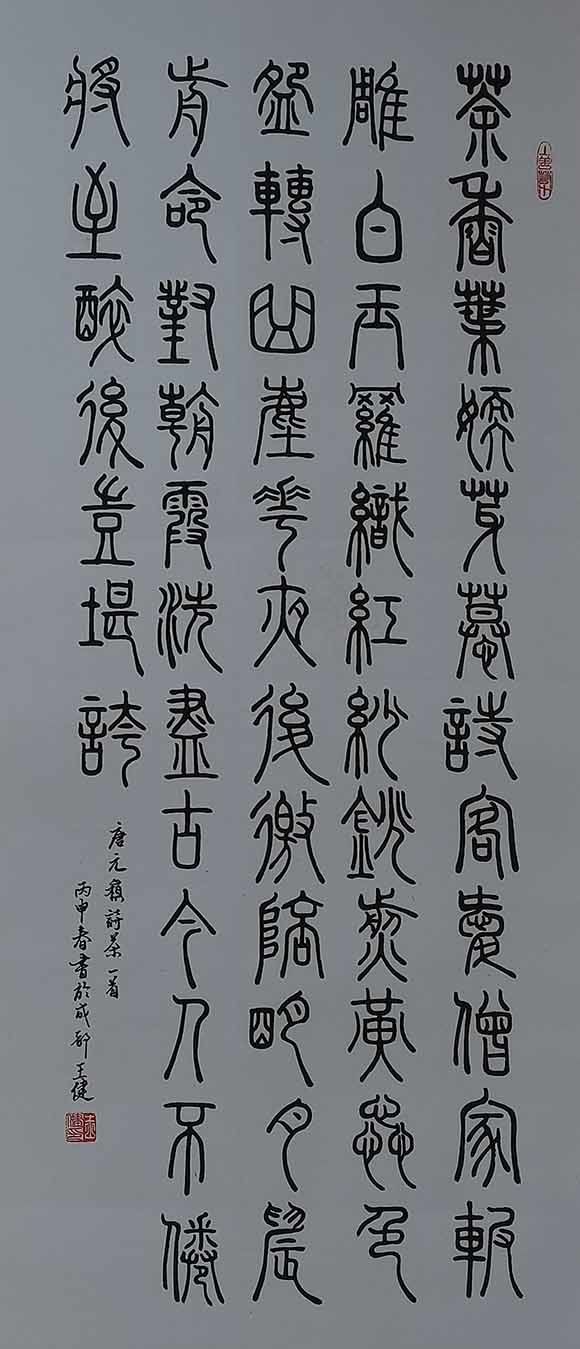 茶香葉嫩芽慕詩客愛僧家輾
雕白玉羅織紅紗銚煎黃蕊色
盌轉曲塵花夜後邀陪明月晨
前命對朝霞洗盡古今人不倦
將至醉後豈堪誇
唐元稹詩茶一首
丙申春書於成都王健